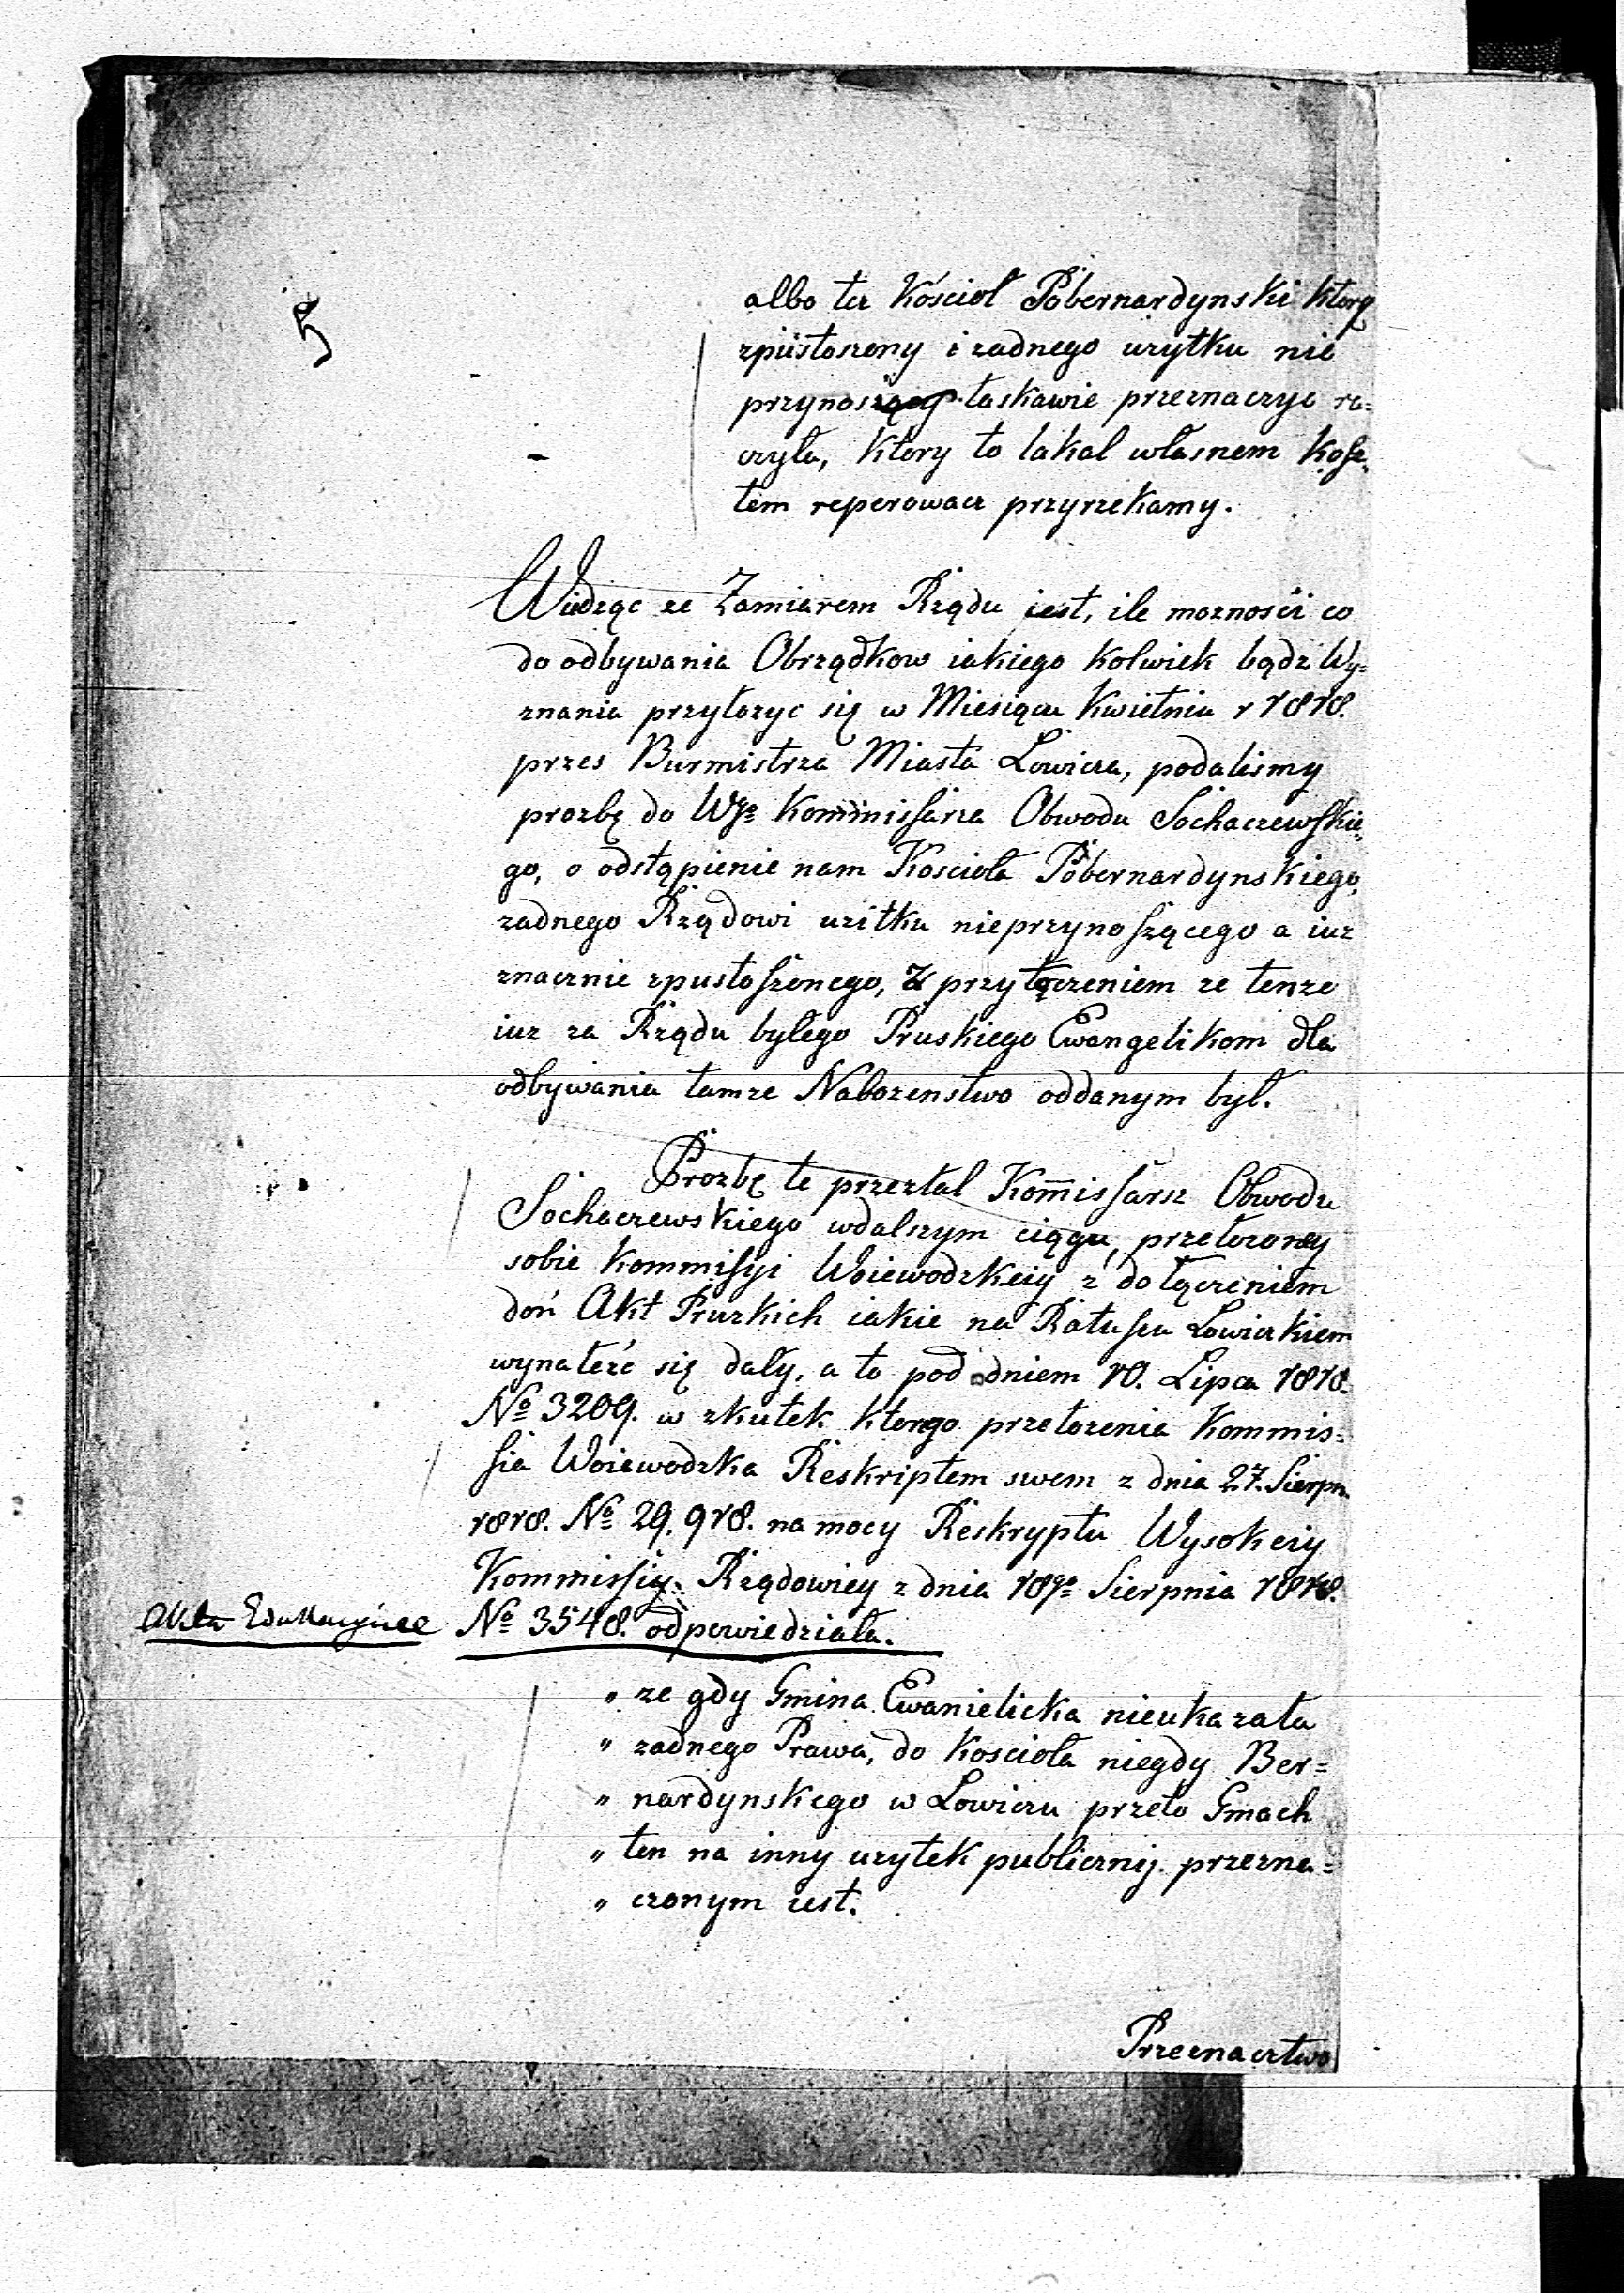 5
albo tez Kościoł Pobernardynski ktory
zpustoszony i zadnego uzytku nie
przynoszący łaskawie przeznaczyc ra=
czyła, ktory to lakal własnem kosz
tem reperowacz przyrzekamy.
Widząc ze Zamiarem Rządu iest, ile mozności co
do odbywania Obrządkow iakiego kolwiek bądz Wy=
znania przyłozyc się w Miesiącu Kwietniu r 1818.
przes Burmistrza Miasta Łowicza, podalismy
prozbę do Wgo Kommissarza Obwodu Sochaczewskie
go, o odstąpienie nam Koscioła Pobernardynskiego,
zadnego Rządowi uzitku nieprzynoszącego a iuz
znacznie zpustoszonego, z przyłączeniem ze tenze
iuz za Rządu byłego Pruskiego Ewangelikom dla
odbywania tamze Nabozenstwo oddanym był.
Prozbę te przezłal Kom̅issarz Obwodu
Sochaczewskiego wdalszym ciągu, przełozoney
sobie Kommissyi Woiewodzkeiy z dołączeniem
doń Akt Pruzkich iakie na Ratuszu Łowickiem
wynaleźć się dały, a to pod dniem 10. Lipca 1818.
No 3209. w zkutek ktorego przełozenia Kommis=
sia Woiewodzka Reskriptem swem z dnia 27. Sierpn
1818. No 29,918. na mocy Reskryptu Wysokeiy
Kommissiy Rządowiey z dnia 18go Sierpnia 1818.
Akta Edukacyine No 3548. odpowiedziała.
" ze gdy Gmina Ewanielicka nieukazała
" zadnego Prawa, do Koscioła niegdy Ber=
" nardynskego w Łowiczu przeto Gmach
" ten na inny uzytek publicznij. przezna=
" czonym iest.
Przeznacztwo